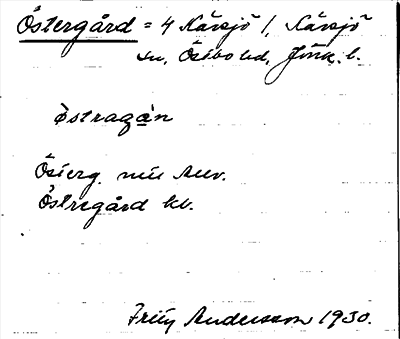 Östergård = 4 Kävsjö 1, Kävsjö
sn, Östbo hd, Jönk. l.
östragán
Österg. nu Anv.
Östregård kb.
Fritz Andersson 1930.